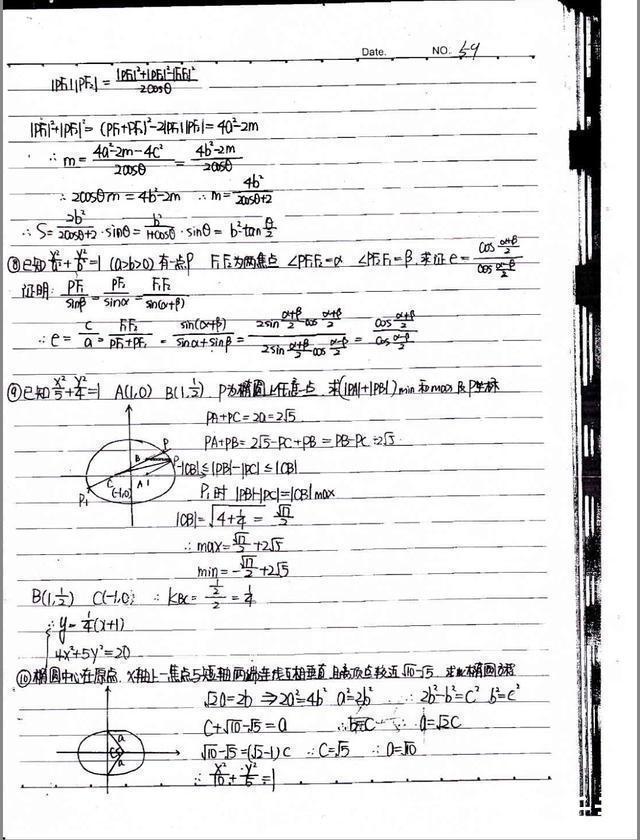 Date. NO. 59
|PF₁||PF₂| = (|PF₁|²+|PF₂|²-|F₁F₂|²)/2cosθ
|PF₁|²+|PF₂|² = (PF₁+PF₂)²-2|PF₁||PF₂| = 4a²-2m
∴ m = (4a²-2m-4c²)/2cosθ = (4b²-2m)/2cosθ
∴ 2cosθm = 4b²-2m ∴ m = 4b²/(2cosθ+2)
∴ S = 2b²/(2cosθ+2) · sinθ = b²/(1+cosθ) · sinθ = b²tan θ/2
⑧已知 x²/a²+y²/b²=1 (a>b>0) 有一点P F₁F₂为两焦点 ∠PF₁F₂=α ∠PF₂F₁=β, 求证 e = cos (α+β)/2 / cos (α-β)/2
证明: PF₁/sinβ = PF₂/sinα = F₁F₂/sin(α+β)
∴ e = c/a = F₁F₂/(PF₂+PF₁) = sin(α+β)/(sinα+sinβ) = 2sin (α+β)/2 cos (α+β)/2 / 2sin (α+β)/2 cos (α-β)/2 = cos (α+β)/2 / cos (α-β)/2
⑨已知 x²/5+y²/4=1 A(1,0) B(1,1/2) P为椭圆上任意一点 求(|PA|+|PB|)min 和 max 及P坐标
PA+PC=2a=2√5
PA+PB = 2√5-PC+PB = PB-PC+2√5
P
B P
-|CB| ≤ |PB|-|PC| ≤ |CB|
C A 1
(-1,0)
P₁
P₁时 |PB|-|PC|=|CB| max
|CB| = √(4+1/4) = √17/2
∴ max = √17/2+2√5
min = -√17/2+2√5
B(1,1/2) C(-1,0) ∴ kBC = (1/2)/2 = 1/4
∴ y = 1/4(x+1)
4x²+5y²=20
⑩椭圆中心在原点, x轴上一焦点与短轴两端连线互相垂直 且与顶点较近√10-√5 求椭圆方程
√2a=2b ⇒ 2a²=4b² a²=2b² ∴ 2b²-b²=c² b²=c²
c+√10-√5=a ∴ b=c ∴ a=√2c
a
c
a
√10-√5=(√2-1)c ∴ c=√5 ∴ a=√10
∴ x²/10+y²/5=1